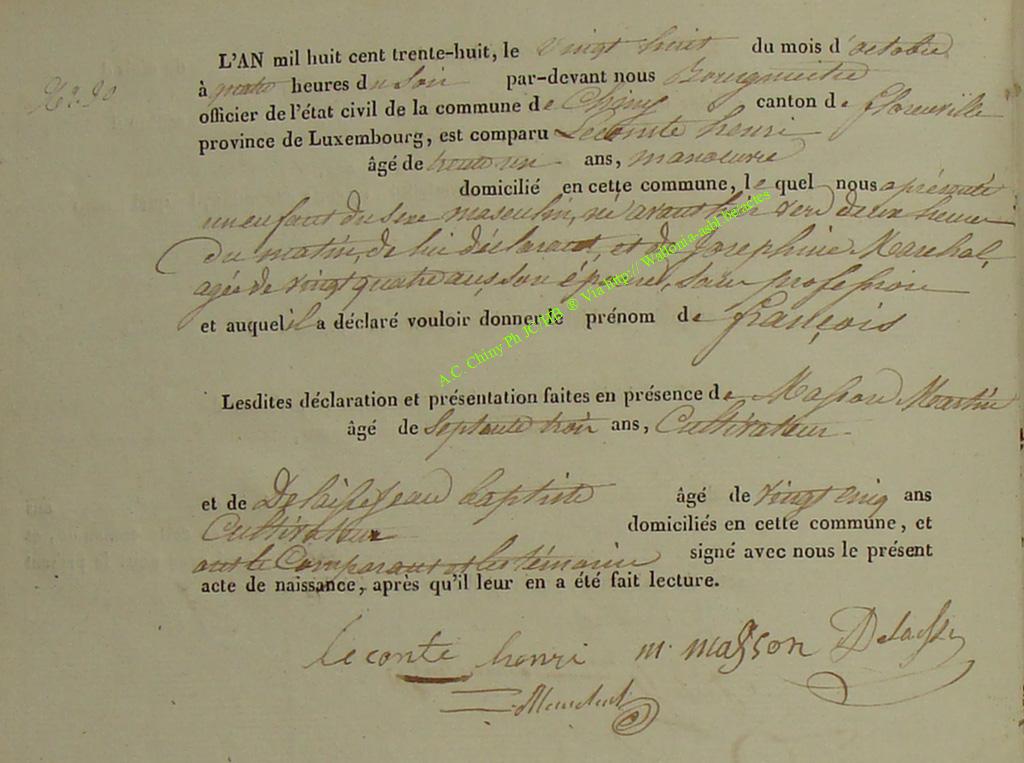 L'AN mil huit cent trente-huit, le vingt huit du mois d'octobre
N°. 30
à heures du Soir par-devant nous Bourgmeitre
officier de l'état civil de la commune de Chiny canton de florenville
province de Luxembourg, est comparu Lecomte henri
âgé de trente un ans, manoeuvre
domicilié en cette commune, le quel nous a présenté
un enfant du sexe masculin, né avant hier vers deux heures
du matin, de lui déclarant, et de Josephine Marechal,
agée de vingt quatre ans, son épouse, sans profession
et auquel il a déclaré vouloir donner le prénom de françois
A.C. Chiny Ph JC ® Via http:// Wallonia-asbl
Lesdites déclaration et présentation faites en présence de Masson Martin
âgé de Septante trois ans, Cultivateur
et de Delaisse Jean baptiste âgé de vingt cinq ans
Cultivateur domiciliés en cette commune, et
ont le Comparant et les témoins signé avec nous le présent
acte de naissance, après qu'il leur en a été fait lecture.
leconte henri m. masson Delaisse